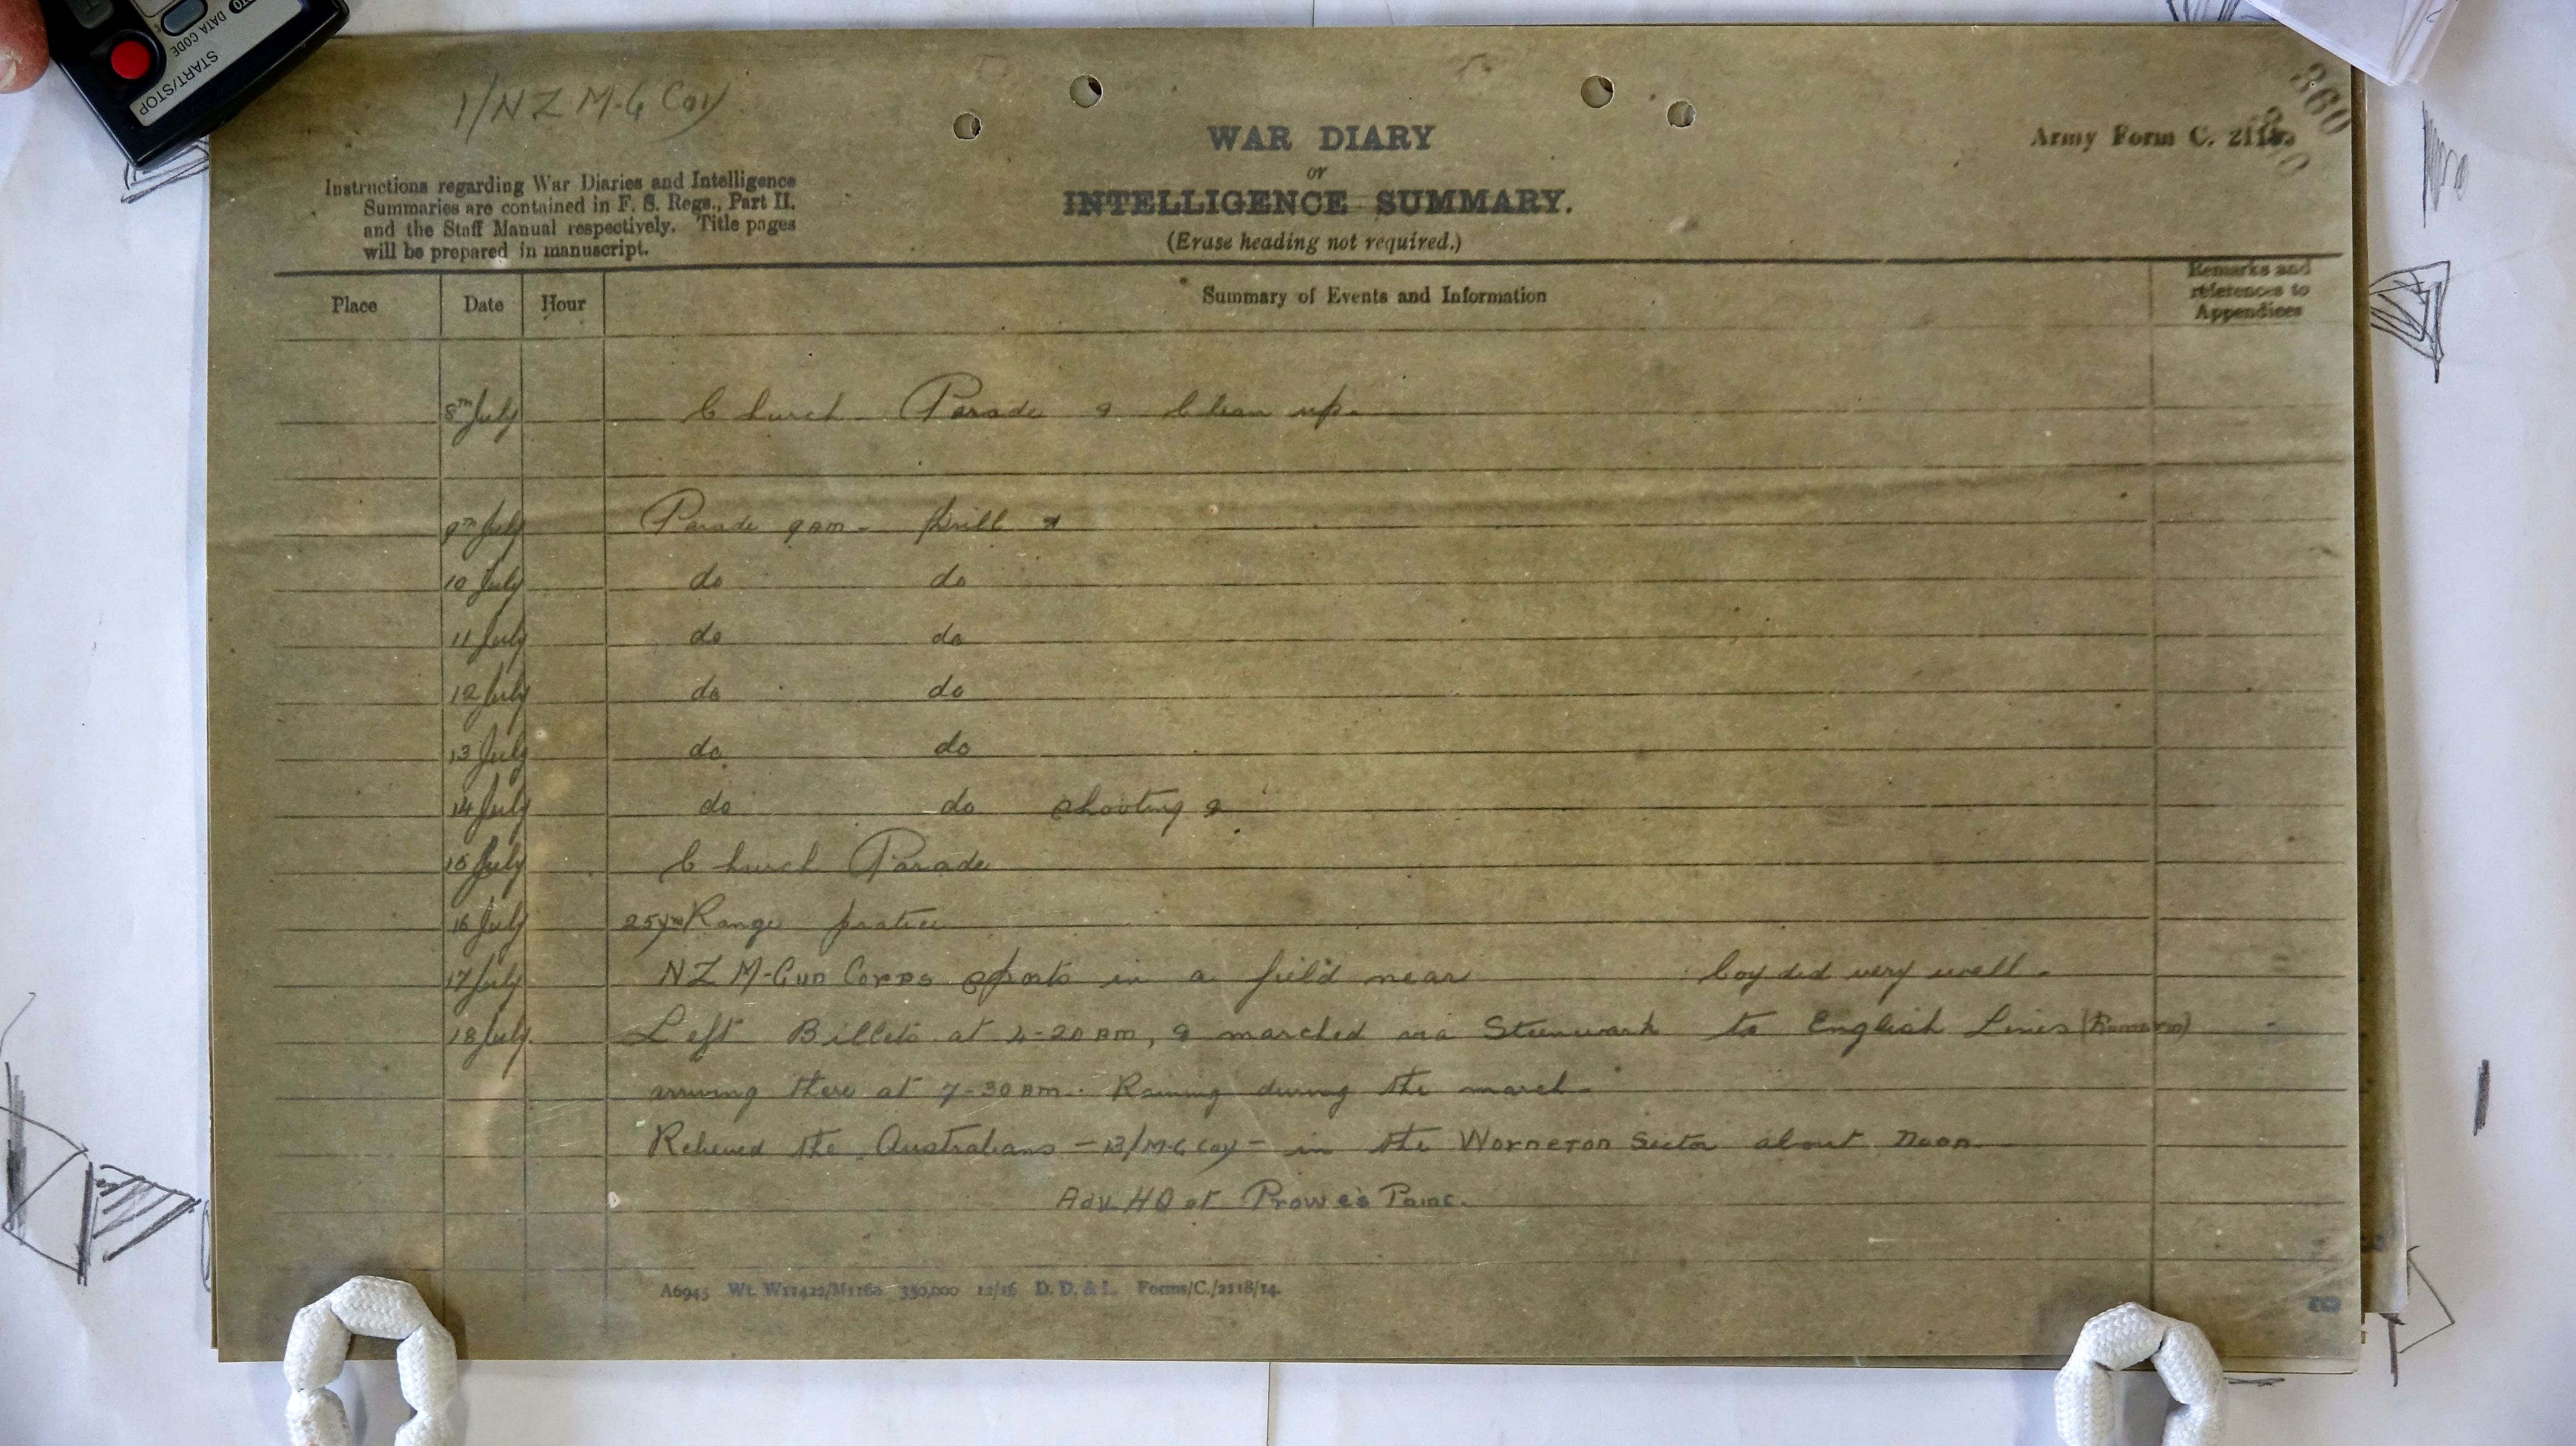 START/STOP
DATA CODE
1/NZ M-G Coy
WAR DIARY
or
INTELLIGENCE SUMMARY.
(Erase heading not required.)
Army Form C. 2118.
360
Instructions regarding War Diaries and Intelligence
Summaries are contained in F. S. Regs., Part II.
and the Staff Manual respectively. Title pages
will be prepared in manuscript.
Place Date Hour Summary of Events and Information Remarks and
references to
Appendices
8th July Church Parade & Clean up.
9th July Parade 9 am - Drill &
10 July do do
11 July do do
12 July do do
13 July do do
14 July do do shooting &
15 July Church Parade
16 July 25yds Range pratice
17 July NZ M-Gun Corps sports in a field near Coy did very well.
18 July. Left Billets at 4-20 am, & marched via Steenwark to English Lines
arriving there at 7-30 am. Raining during the march.
Relieved the Australians - 13/M-G Coy - in the Worneton Sector about Noon.
Adv HQ at Prowe's Point.
A6945 Wt. W11422/M1160 350,000 12/16 D. D. & L. Forms/C./2118/14.